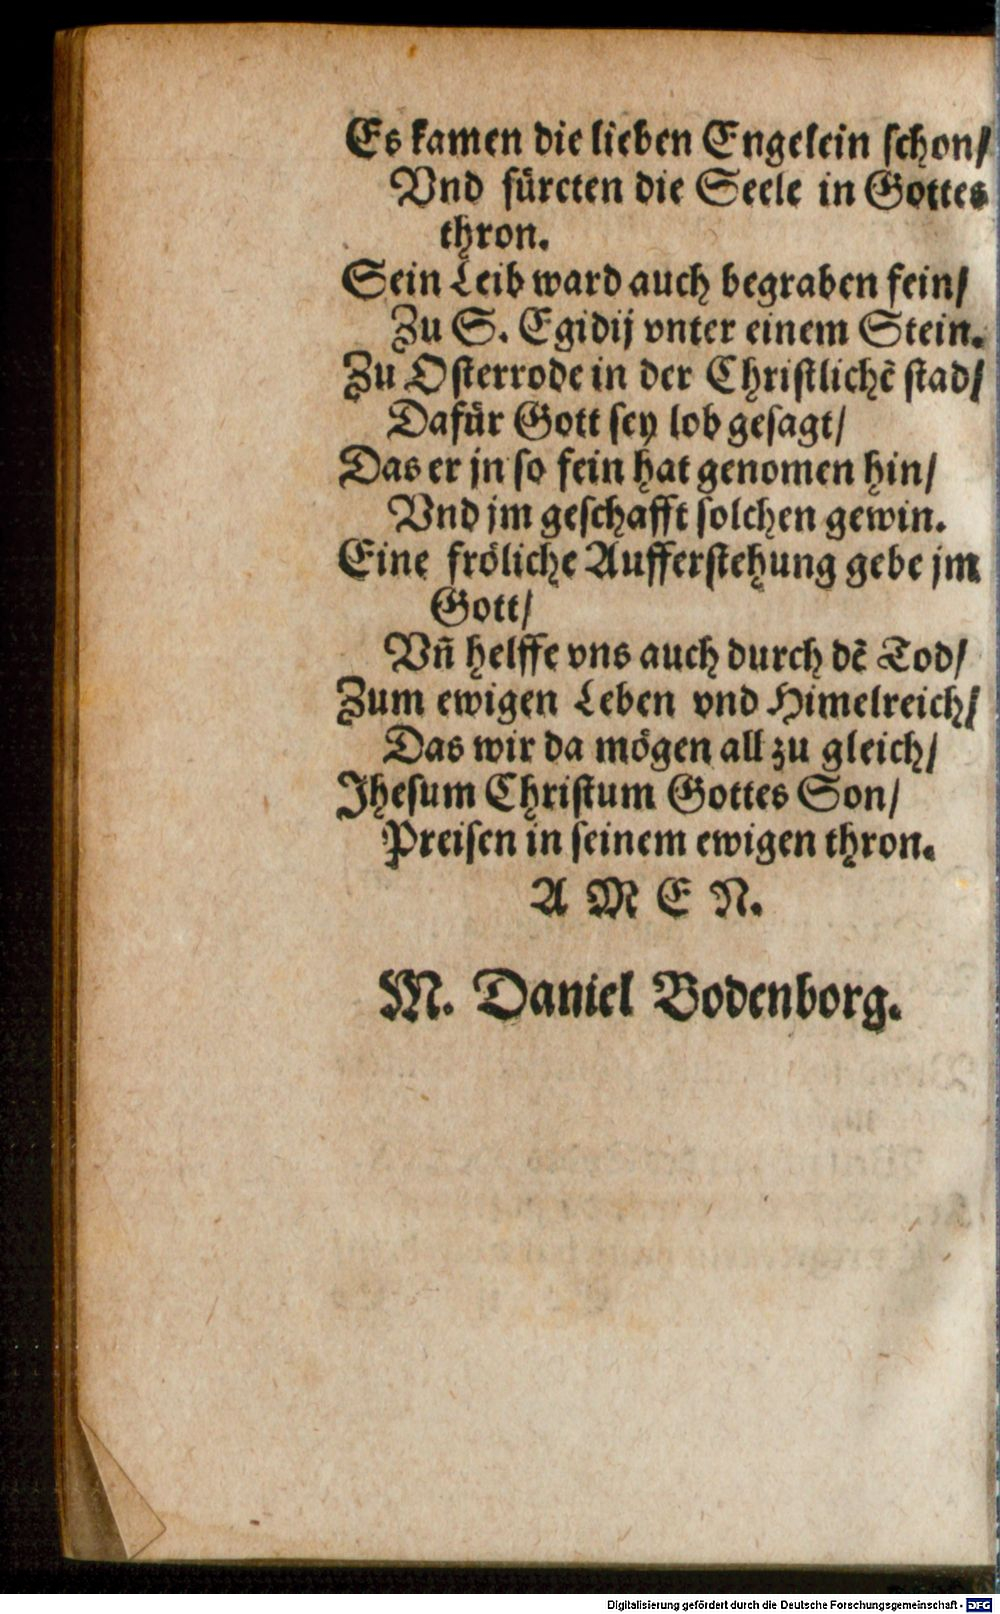 Es kamen die lieben Engelein ſchon/
Vnd fürcten die Seele in Gottes
thron.
Sein Leib ward auch begraben fein/
Zu S. Egidij vnter einem Stein.
Zu Oſterrode in der Chriſtlichē ſtad/
Dafür Gott ſey lob geſagt/
Das er jn ſo fein hat genomen hin/
Vnd jm geſchafft ſolchen gewin.
Eine fröliche Aufferſtehung gebe jm
Gott/
Vñ helffe vns auch durch dē Tod/
Zum ewigen Leben vnd Himelreich/
Das wir da mögen all zu gleich/
Jheſum Chriſtum Gottes Son/
Preiſen in ſeinem ewigen thron.
A M E N.
M. Daniel Bodenborg.
Digitalisierung gefördert durch die Deutsche Forschungsgemeinschaft - DFG